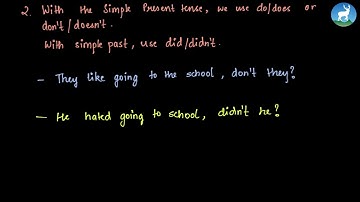 2. With the Simple Present tense, we use do/does or
don't/doesn't.
With simple past, use did/didn't.
- They like going to the school, don't they?
- He hated going to school, didn't he?